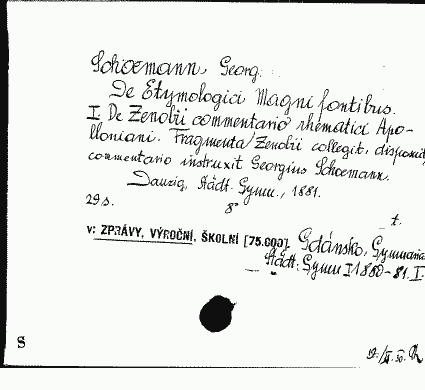 Schoemann, Georg.
De Etymologici Magni fontibus.
I. De Zenobii commentario rhematici Apo-
lloniani. Fragmenta Zenobii collegit, disposuit,
commentario instruxit Georgius Schoemann.
Danzig, Städt. Gymn., 1881.
29 s. 8° t.
v: ZPRÁVY, VÝROČNÍ, ŠKOLNÍ [75.600]. Gdánsko, Gymnasia
Städt. Gymn I 1880-81. I.
S